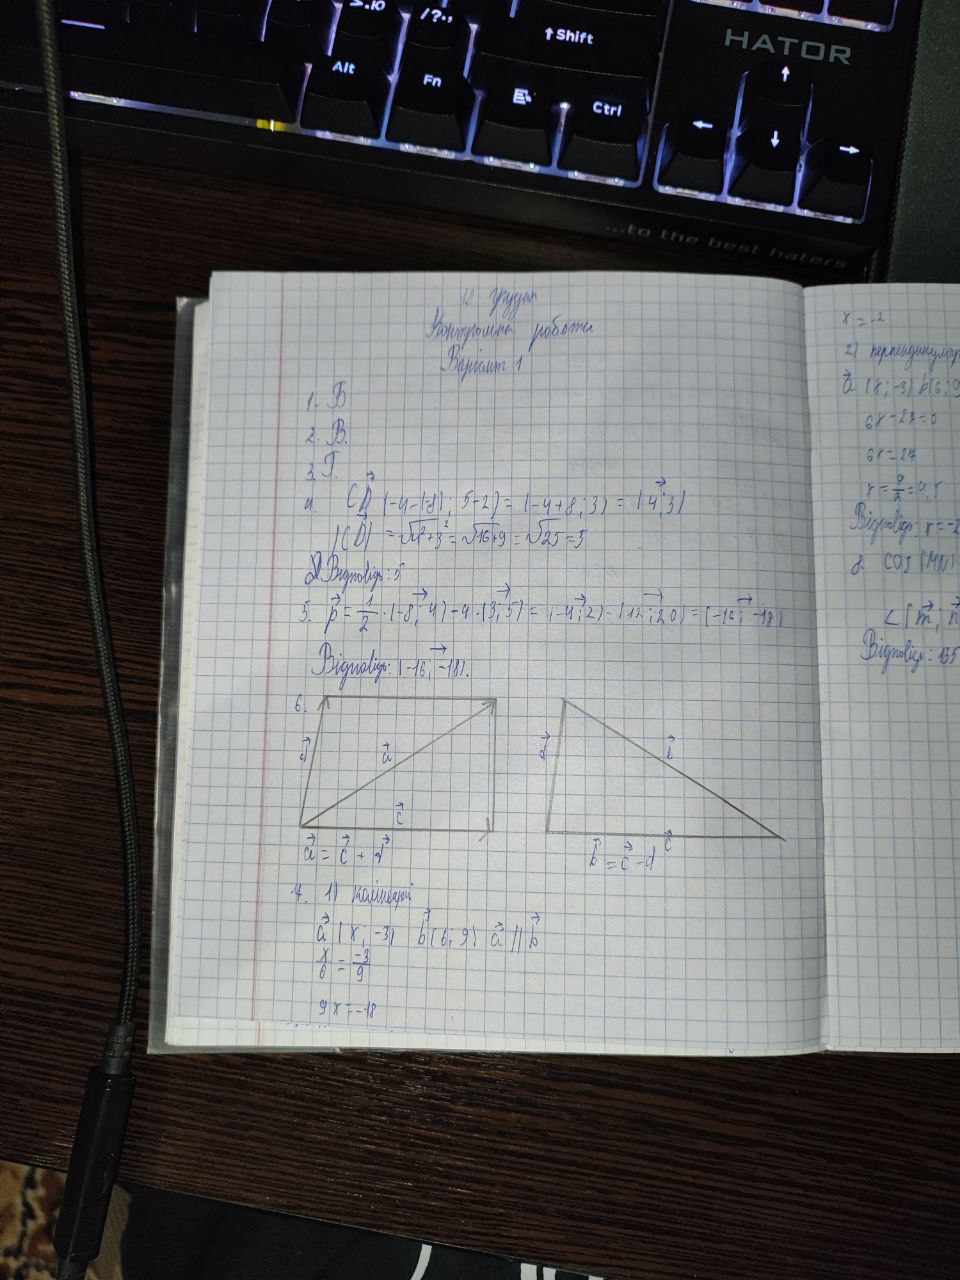 >.10
/?.,
↑Shift
HATOR
Alt
Fn
Ctrl
↑
←
↓
→
...to the best haters
12 грудня
Контрольна робота
Варіант 1
1. Б
2. В.
3. Г.
4. CD (-4-(-8); 5-2) = (-4+8; 3) = (4; 3)
|CD| = √4²+3² = √16+9 = √25 = 5
Відповідь: 5
5. p = 1/2 · (-8; 4) - 4 · (3; 5) = (-4; 2) - (12; 20) = (-16; -18)
Відповідь: (-16; -18).
6.
d a c
a = c + d
d b c
b = c - d
7. 1) колінеарні
a (x; -3) b (6; 9) a || b
x/6 = -3/9
9x = -18
x = -2
2) перпендикуляр
a (x; -3) b (6; 9
6x - 27 = 0
6x = 27
x = 9/2 = 4,5
Відповідь: x = -2
8. cos (MN)
∠(m; n
Відповідь: 135